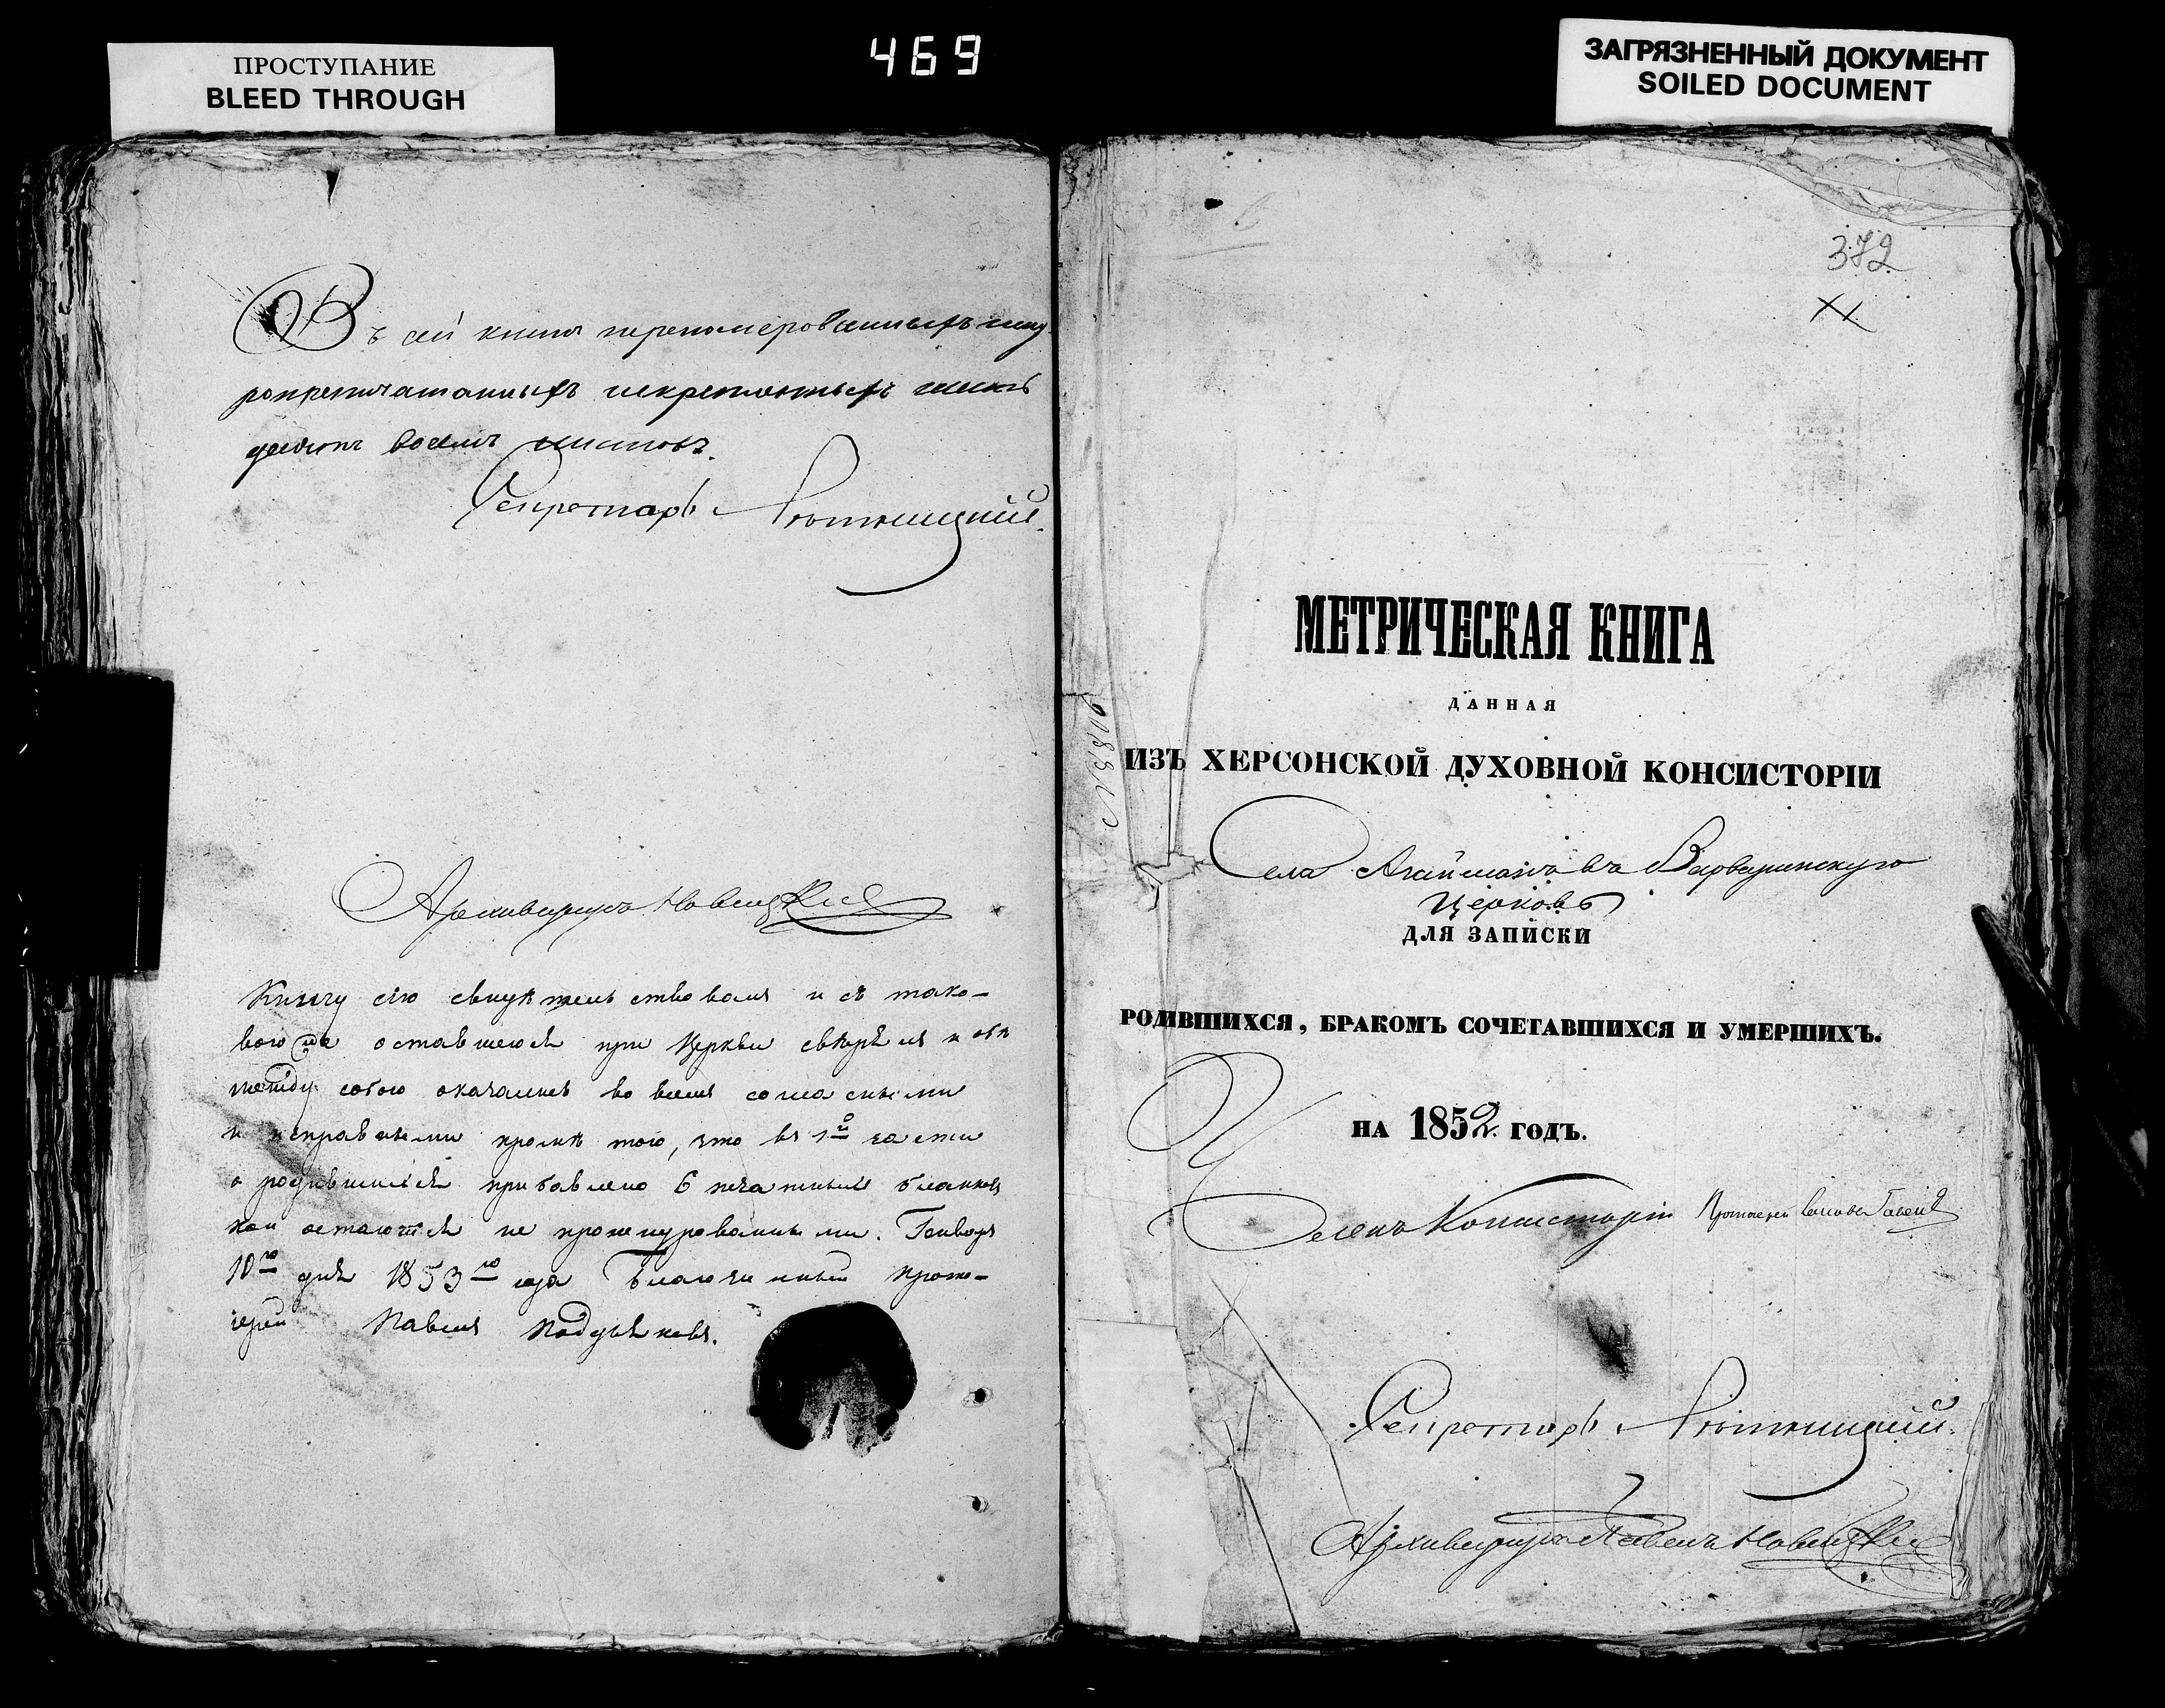 ПРОСТУПАНИЕ
BLEED THROUGH
469
ЗАГРЯЗНЕННЫЙ ДОКУМЕНТ
SOILED DOCUMENT
Въ сей книгѣ перенумерованныхъ шну
ропрепечатанныхъ искрепленныхъ
десятъ восемь листовъ.
Секретарь
Архиваріусъ Новицкій
Книгу сію свидѣтельствовалъ и съ тако-
вою же оставшеюся при Церкви свѣрялъ и обѣ
между собою оказались во всемъ согласными
и исправными кромѣ того, что въ 1й части
о родившихся прибавлено 6 печатныхъ бланковъ
кои остаются не прошнурованными. Генваря
10го дня 1853го года Благочинный Прото-
іерей Павелъ
372
МЕТРИЧЕСКАЯ КНИГА
ДАННАЯ
ИЗЪ ХЕРСОНСКОЙ ДУХОВНОЙ КОНСИСТОРІИ
Села Агаймановъ Варваринскую
Церковь
ДЛЯ ЗАПИСКИ
РОДИВШИХСЯ, БРАКОМЪ СОЧЕТАВШИХСЯ И УМЕРШИХЪ.
НА 1852 ГОДЪ.
Членъ Консисторіи Протоіерей
Секретарь
Архиваріусъ Павелъ Новицкій